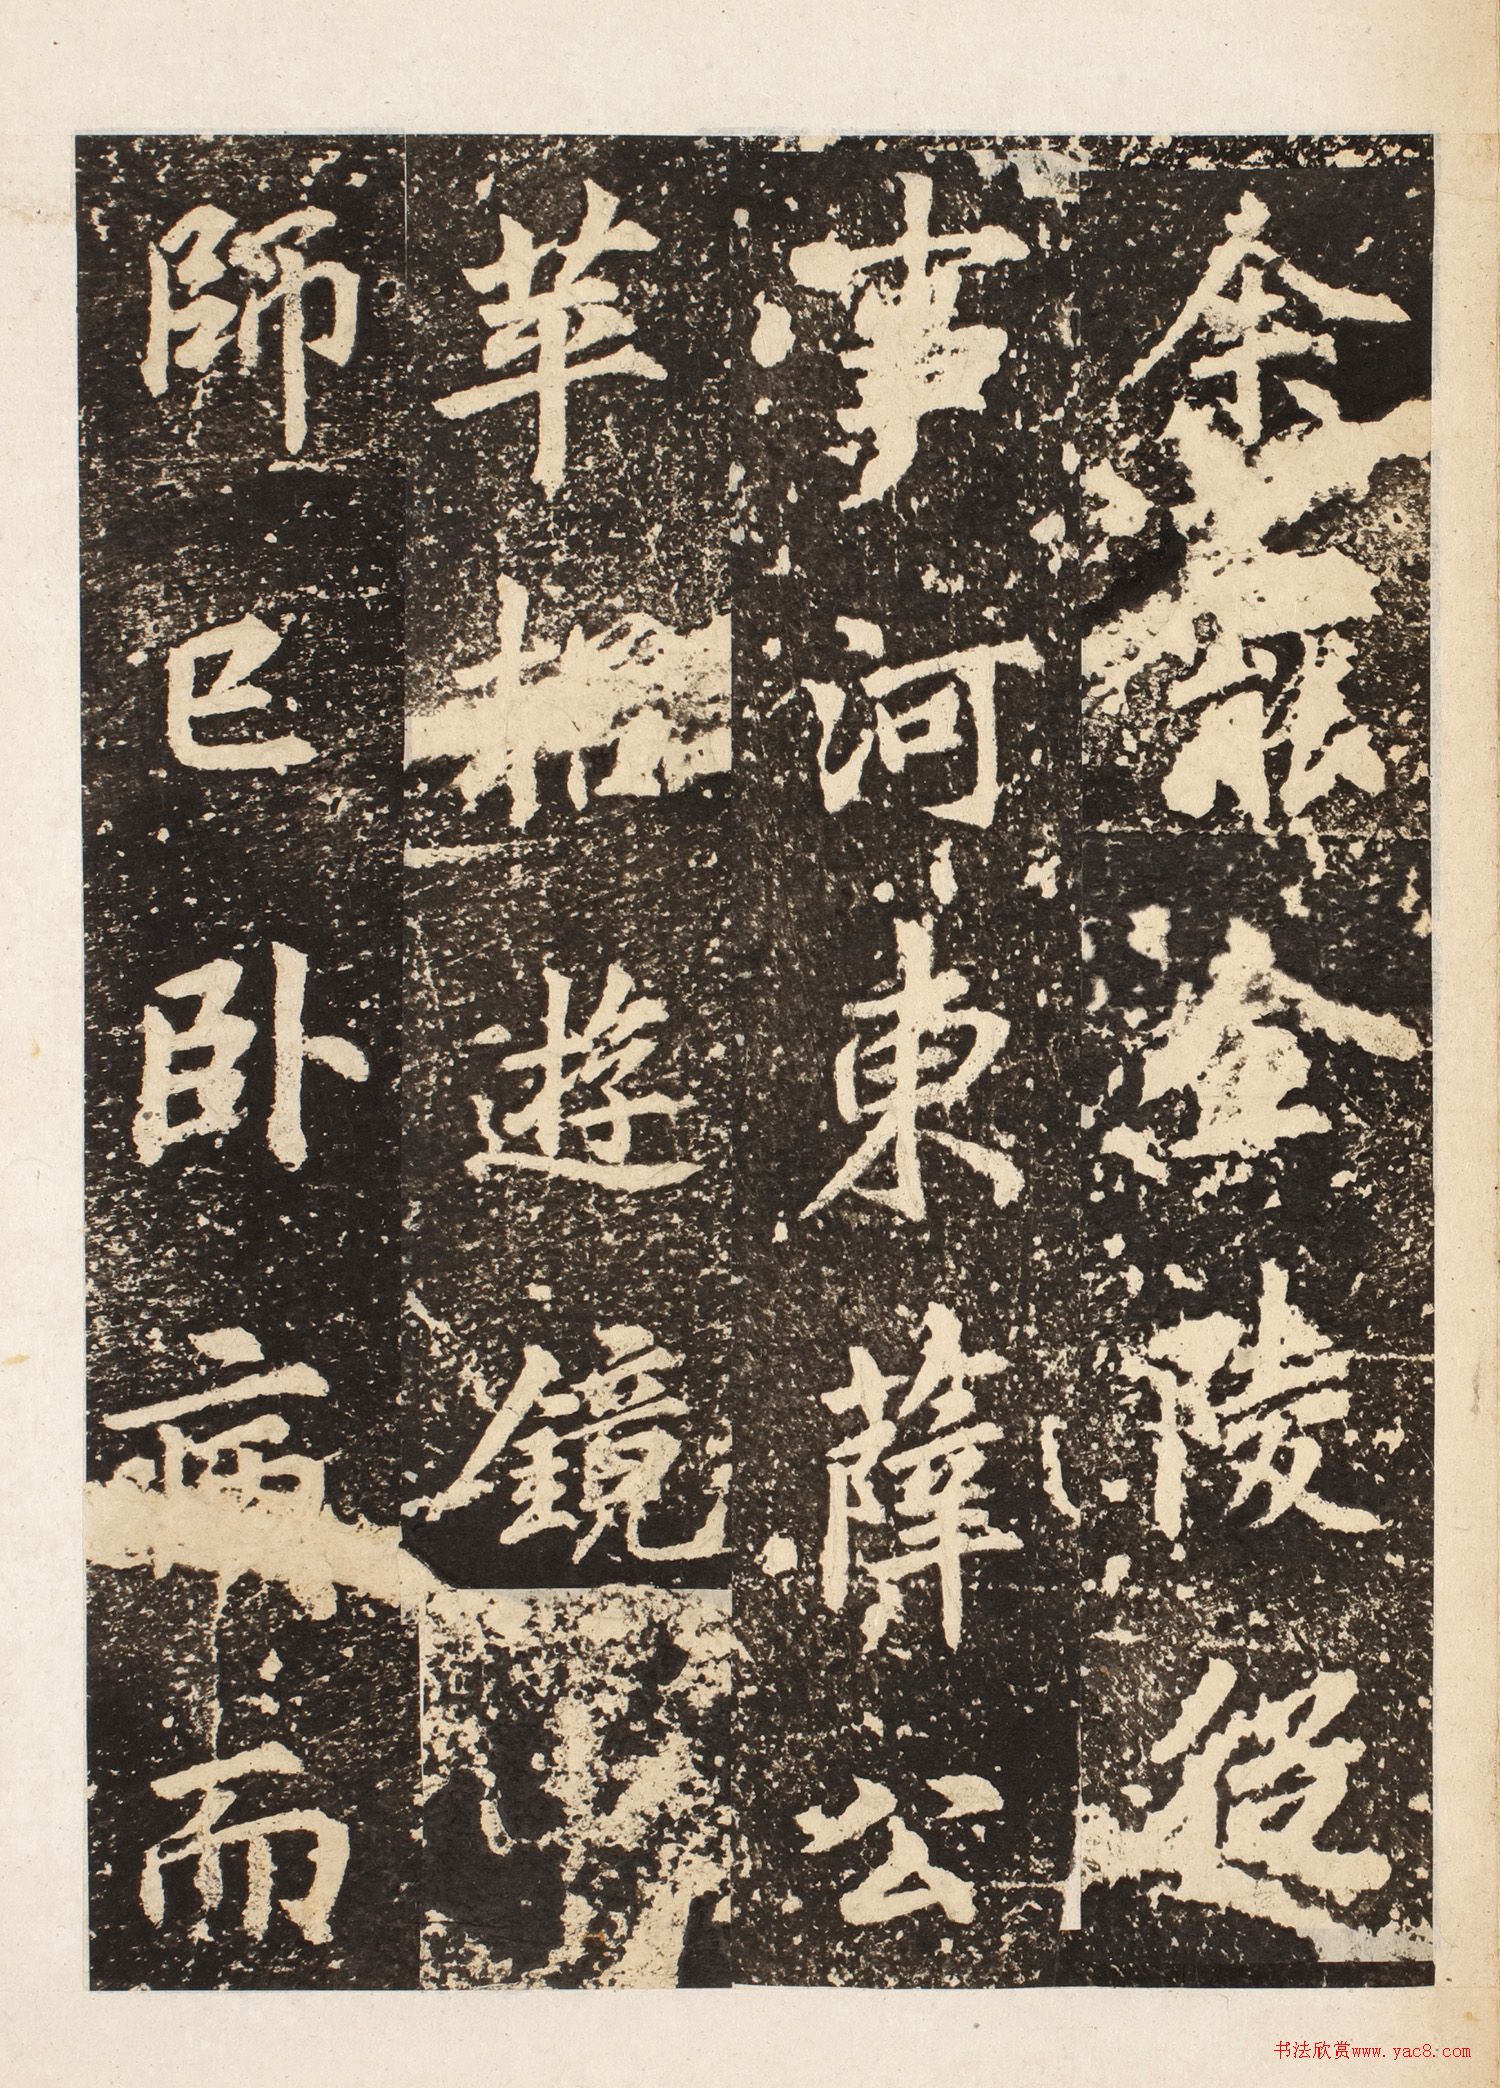 余罷金陵從
事河東薛公
苹招遊鏡
師已臥病而
书法欣赏www.yac8.com